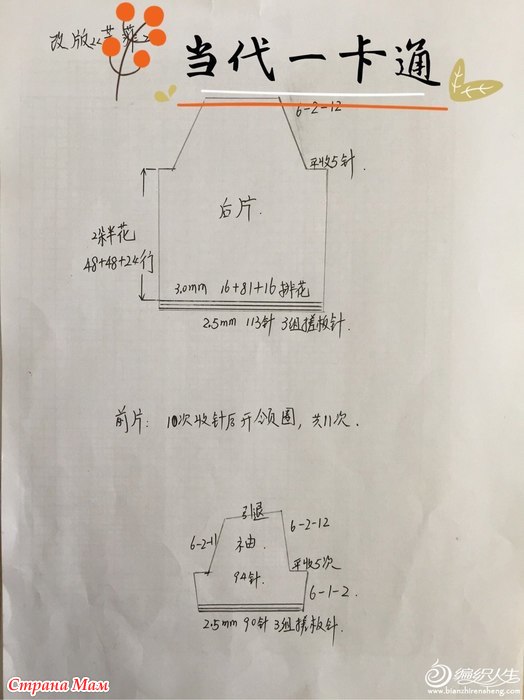 改版
当代一卡通
6-2-12
平收5针
后片.
2朵半花
48+48+24行
3.0mm 16+81+16 排花
2.5mm 113针 3组搓板针.
前片: 10次收针后开领圈, 共11次.
引退
6-2-11
6-2-12
袖.
平收5次
94针
6-1-2.
2.5mm 90针 3组搓板针.
Страна Мам
编织人生
www.bianzhirensheng.com